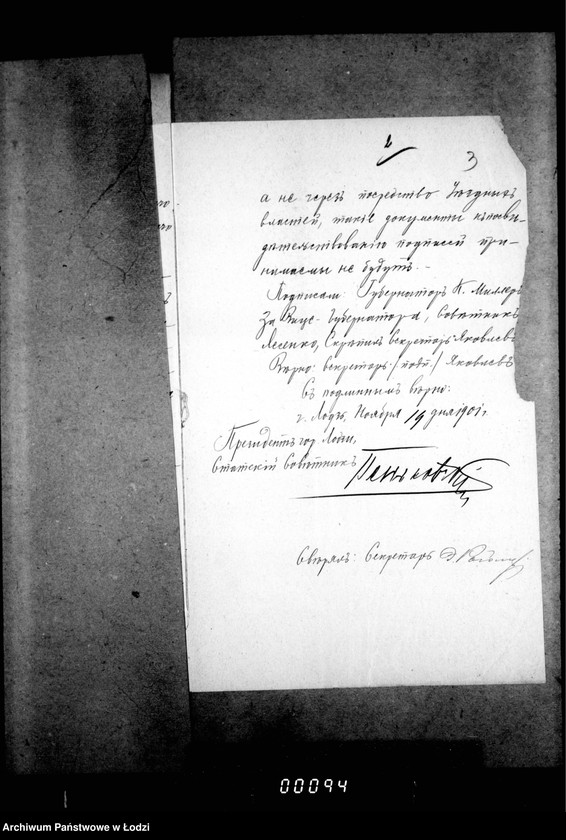 3
а не черезъ посредство Уѣздныхъ
властей, такіе документы къ посви-
дѣтельствованію подписей при-
нимаемы не будутъ.-
Подписали: Губернаторъ К. Миллеръ
За Вице-Губернатора, Совѣтникъ
Лесенко, Скрѣпилъ Секретарь Яковлевъ
Вѣрно: Секретарь /подп./ Яковлевъ
Съ подлиннымъ вѣрно:
г. Лодзь, Ноября 19 дня 1901 г.
Президентъ гор. Лодзи,
Статскій Совѣтникъ Пеньковскій
Свѣрялъ: Секретарь
00094
Archiwum Państwowe w Łodzi